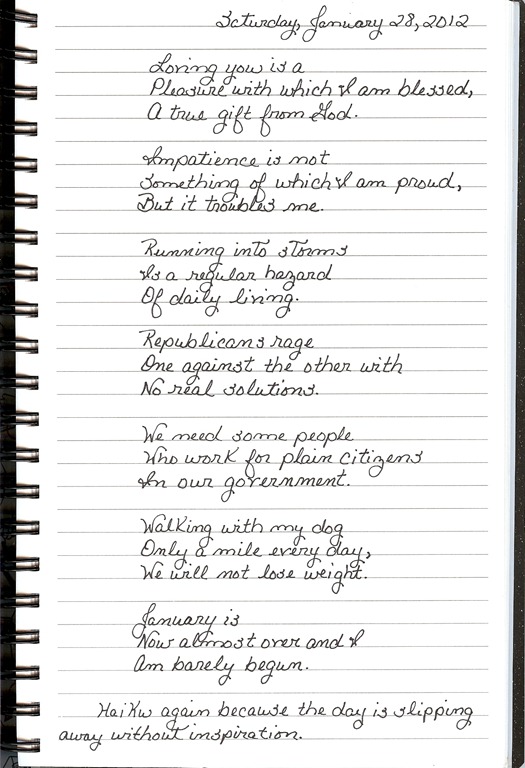 Saturday, January 28, 2012
Loving you is a
Pleasure with which I am blessed,
A true gift from God.
Impatience is not
Something of which I am proud,
But it troubles me.
Running into storms
Is a regular hazard
Of daily living.
Republicans rage
One against the other with
No real solutions.
We need some people
Who work for plain citizens
In our government.
Walking with my dog
Only a mile every day,
We will not lose weight.
January is
Now almost over and I
Am barely begun.
Haiku again because the day is slipping
away without inspiration.